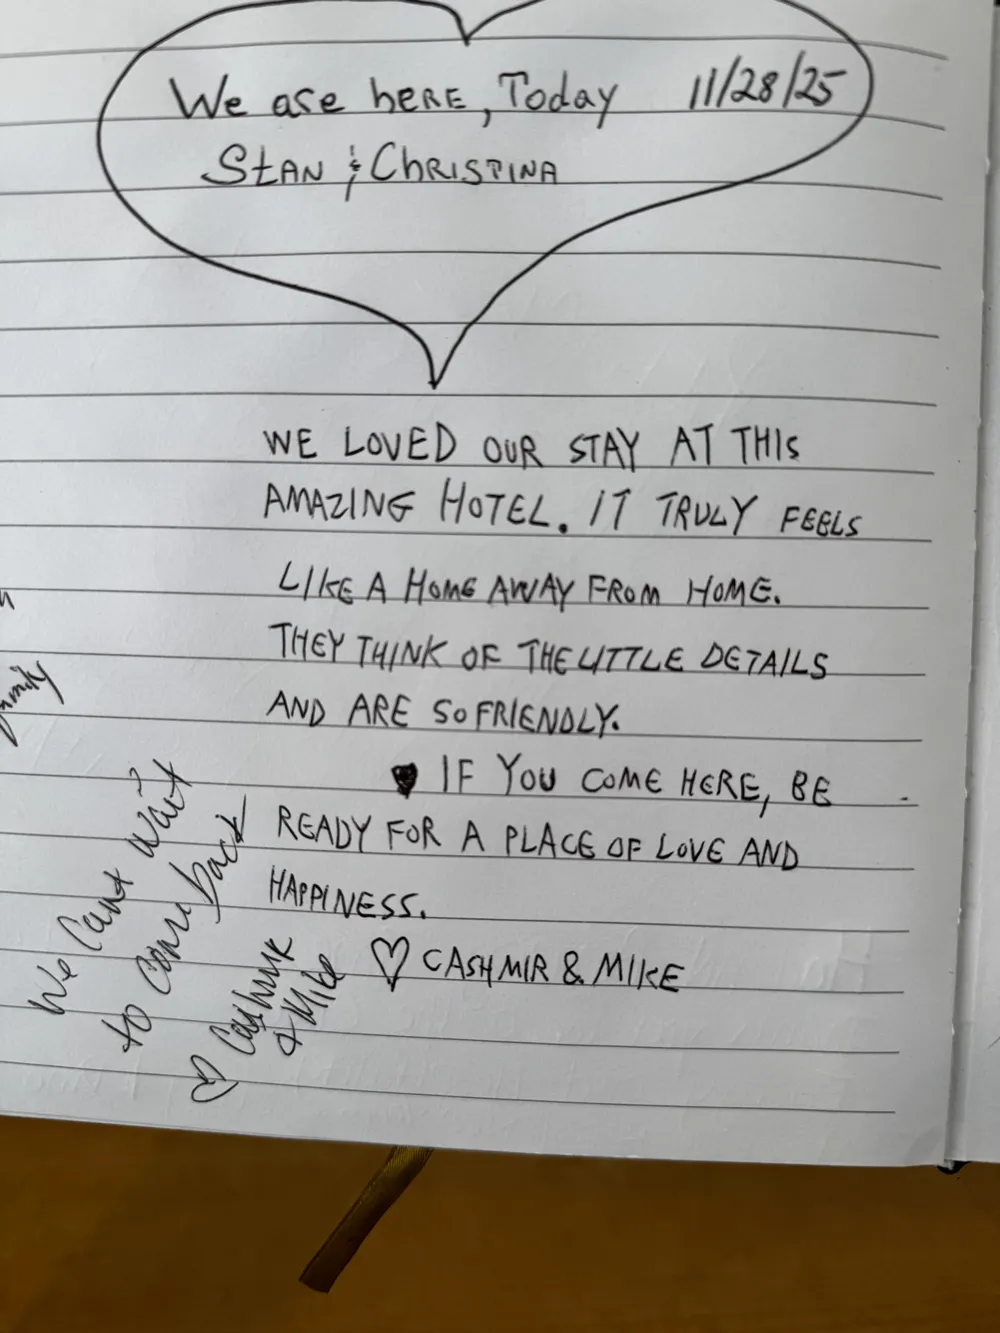 We are here, Today 11/28/25
Stan & Christina
WE LOVED OUR STAY AT THIS
AMAZING HOTEL. IT TRULY FEELS
LIKE A HOME AWAY FROM HOME.
THEY THINK OF THE LITTLE DETAILS
AND ARE SO FRIENDLY.
IF YOU COME HERE, BE
READY FOR A PLACE OF LOVE AND
HAPPINESS.
♡ CASHMIR & MIKE
We Cant wait
to come back!
♡ Cashmir
& Mike